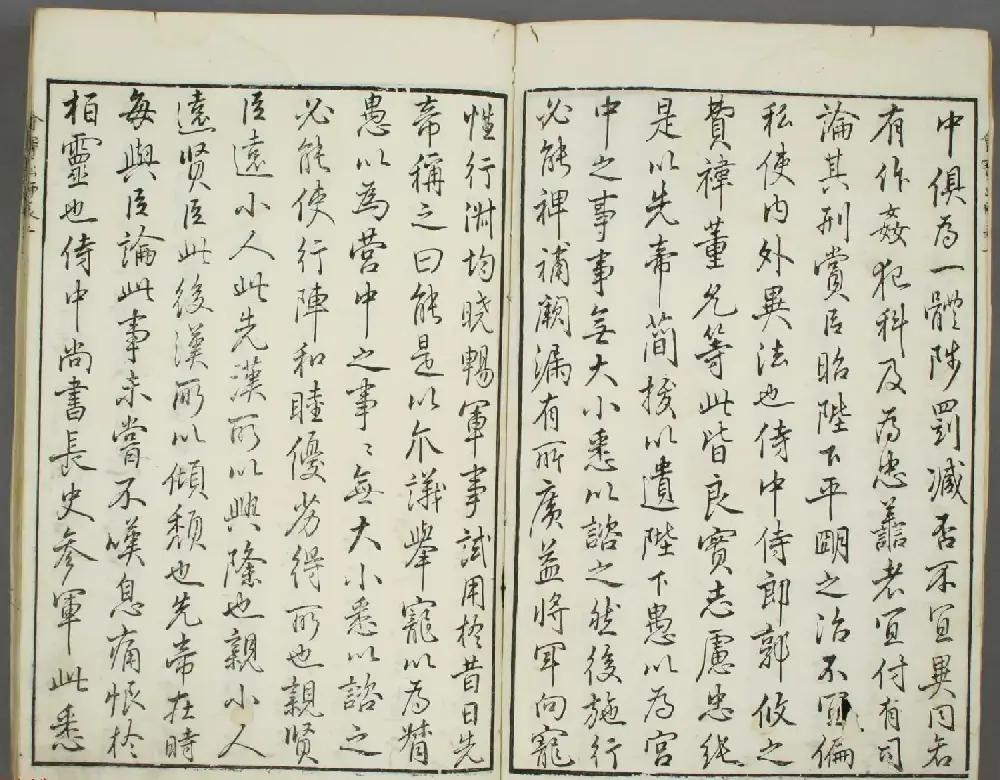 中俱為一體陟罰臧否不宜異同若
有作姦犯科及為忠善者宜付有司
論其刑賞以昭陛下平明之治不宜偏
私使内外異法也侍中侍郎郭攸之
費褘董允等此皆良實志慮忠純
是以先帝簡拔以遺陛下愚以為宮
中之事事無大小悉以諮之然後施行
必能裨補闕漏有所廣益將軍向寵
性行淑均曉暢軍事試用於昔日先
帝稱之曰能是以衆議舉寵以為督
愚以為營中之事〻無大小悉以諮之
必能使行陣和睦優劣得所也親賢
臣遠小人此先漢所以興隆也親小人
遠賢臣此後漢所以傾頹也先帝在時
每與臣論此事未嘗不嘆息痛恨於
桓靈也侍中尚書長史參軍此悉